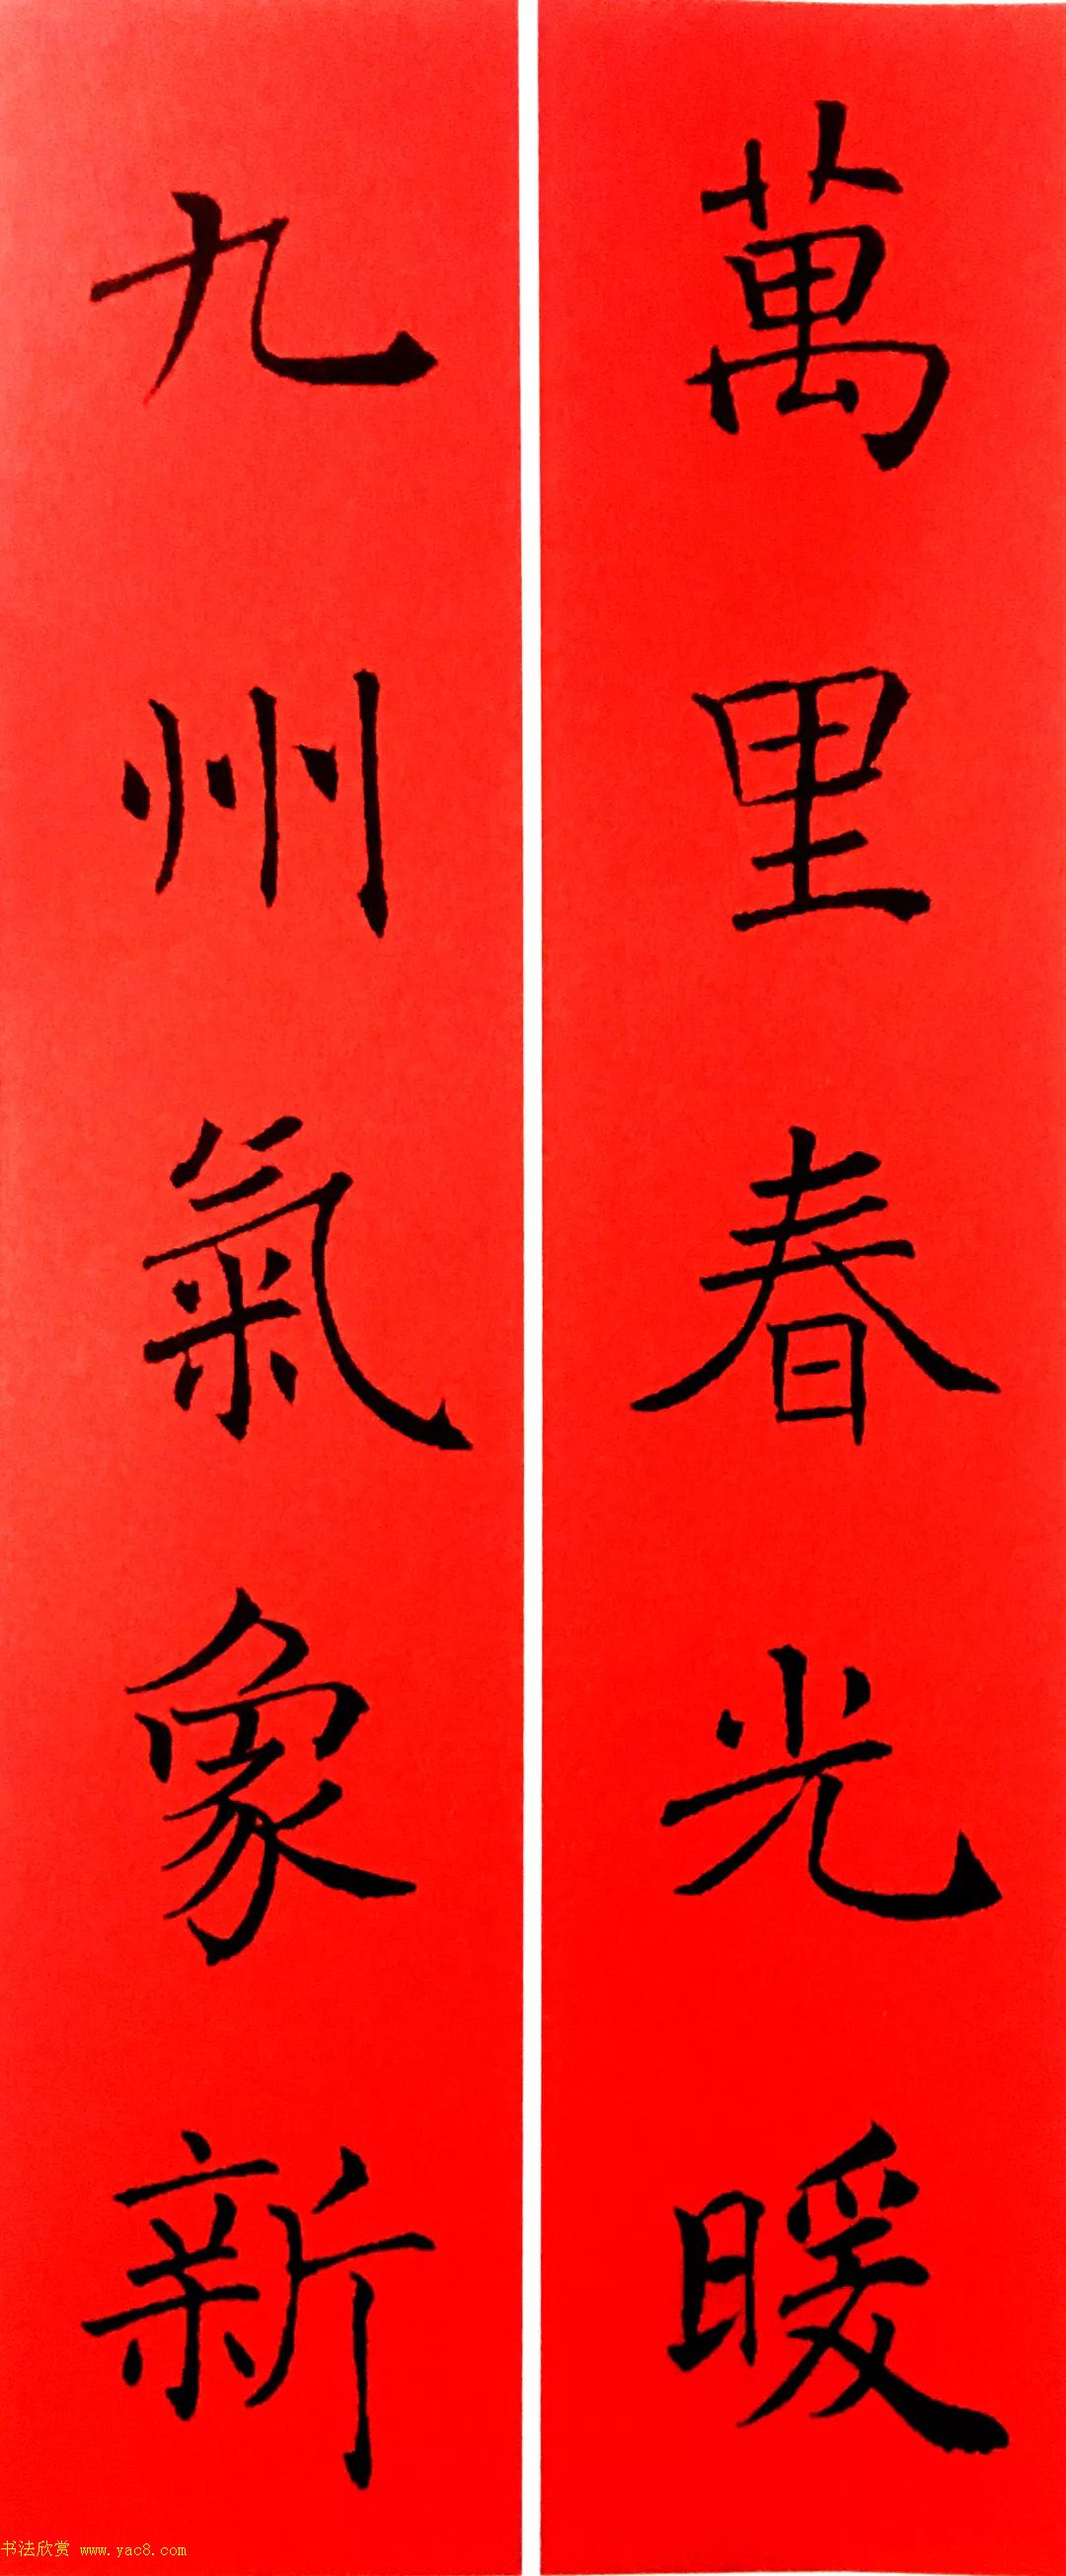 萬里春光暖
九州氣象新
书法欣赏 www.yac8.com